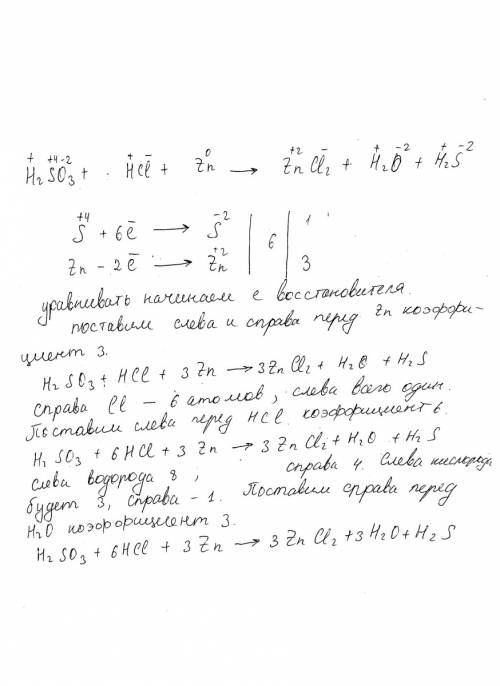 H₂⁺S⁺⁴O₃⁻² + · H⁺Cl⁻ + Zn⁰ → Zn⁺²Cl₂⁻ + H₂⁺O⁻² + H₂⁺S⁻²
S⁺⁴ + 6ē → S⁻² | 6 | 1
Zn - 2ē → Zn⁺² | | 3
уравнивать начинаем с восстановителя.
поставим слева и справа перед Zn коэффи-
циент 3.
H₂SO₃ + HCl + 3Zn → 3ZnCl₂ + H₂O + H₂S
справа Cl – 6 атомов, слева всего один.
Поставим слева перед HCl коэффициент 6.
H₂SO₃ + 6HCl + 3Zn → 3ZnCl₂ + H₂O + H₂S
слева водорода 8, справа 4. Слева кислорода
будет 3, справа - 1. Поставим справа перед
H₂O коэффициент 3.
H₂SO₃ + 6HCl + 3Zn → 3ZnCl₂ + 3H₂O + H₂S